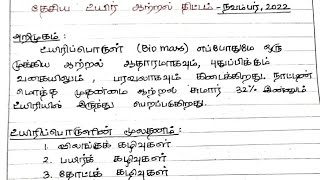 தேசிய உயிர் ஆற்றல் திட்டம் - நவம்பர், 2022
அறிமுகம் :
உயிரிப்பொருள் (Bio mass) எப்போதுமே ஒரு
முக்கிய ஆற்றல் ஆதாரமாகவும், புதுப்பிக்கத்
வகையிலும் , பரவலாகவும் கிடைக்கிறது. நாட்டின்
மொத்த முதன்மை ஆற்றல் சுமார் 32% இன்னும்
உயிரியில் இருந்து பெறப்படுகிறது.
உயிரிப்பொருளின் மூலதனம் :
1. விலங்குக் கழிவுகள்
2. பயிர்க் கழிவுகள்
3. தோட்டக் கழிவுகள்